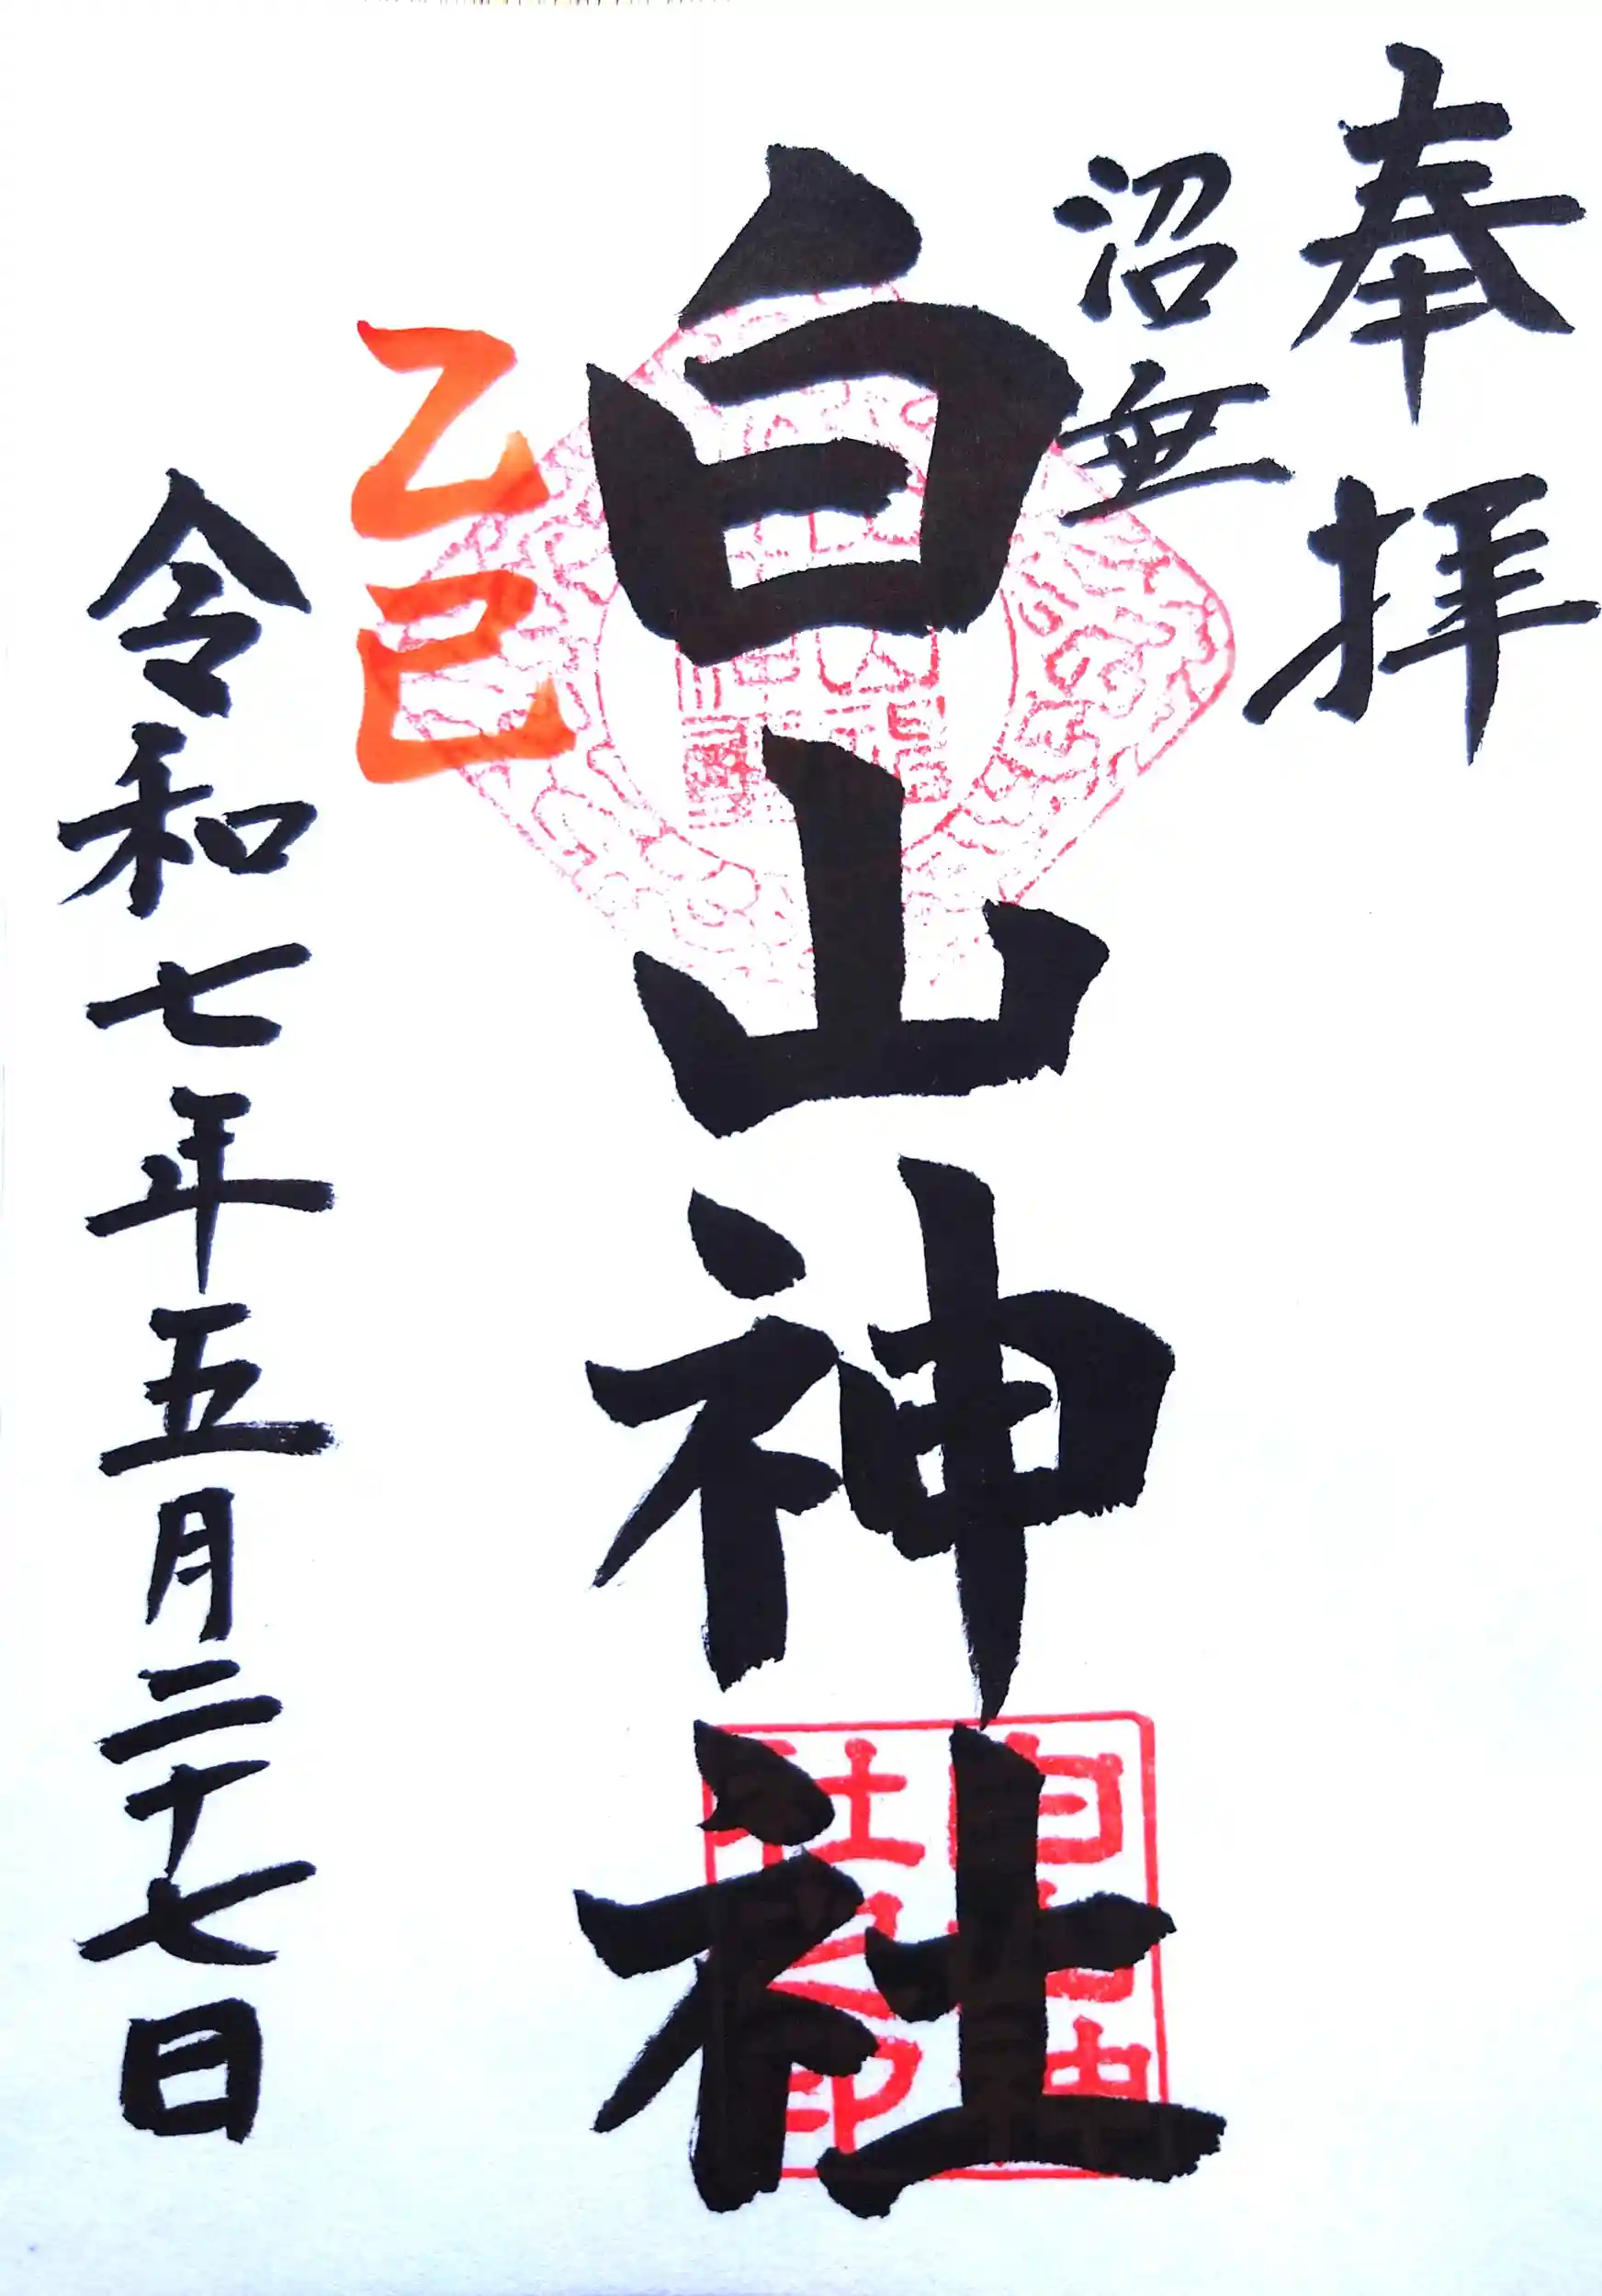 奉拝
沼垂
白山神社
白山神
社之印
乙巳
令和七年五月二十七日